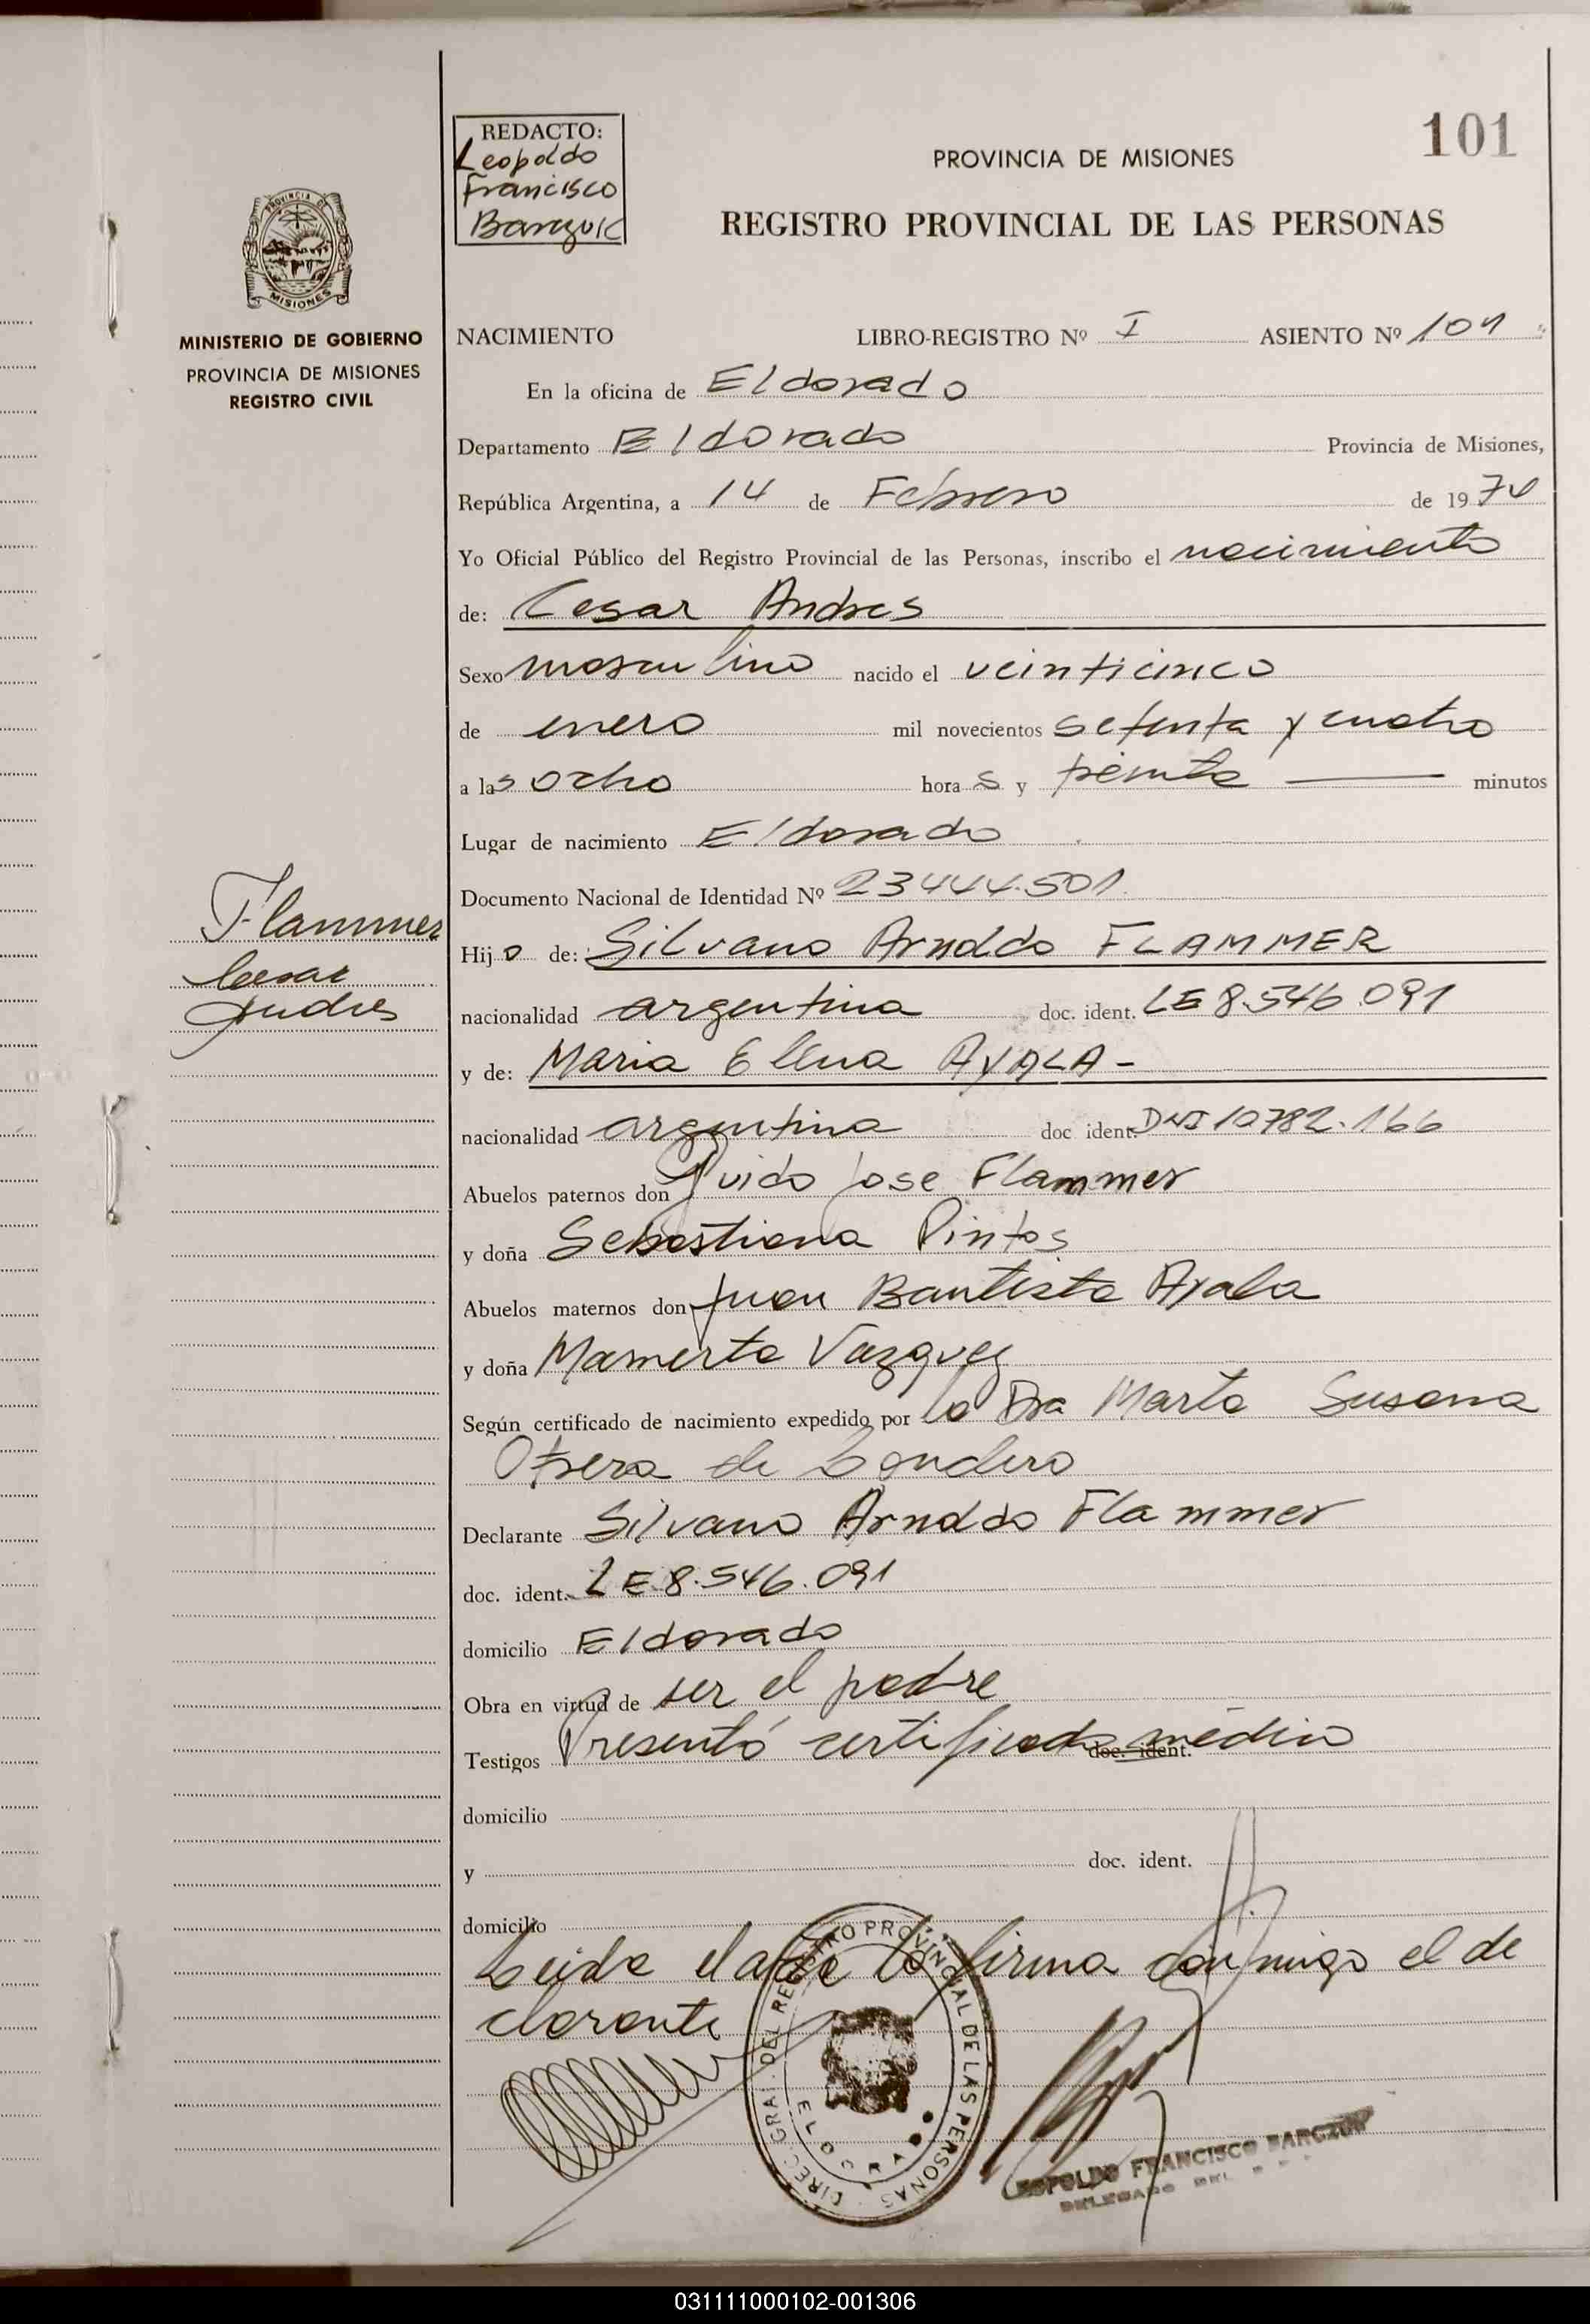 REDACTO:
Leopoldo
Francisco
Barczuk
101
PROVINCIA DE MISIONES
REGISTRO PROVINCIAL DE LAS PERSONAS
PROVINCIA DE
MISIONES
MINISTERIO DE GOBIERNO
PROVINCIA DE MISIONES
REGISTRO CIVIL
NACIMIENTO LIBRO-REGISTRO Nº I ASIENTO Nº 101
En la oficina de Eldorado
Departamento Eldorado Provincia de Misiones,
República Argentina, a 14 de Febrero de 1974
Yo Oficial Público del Registro Provincial de las Personas, inscribo el nacimiento
de: Cesar Andres
Sexo masculino nacido el veinticinco
de enero mil novecientos setenta y cuatro
a las ocho horas y treinta minutos
Lugar de nacimiento Eldorado
Documento Nacional de Identidad Nº 23444.501
Flammer
Cesar
Andres
Hijo de: Silvano Arnoldo FLAMMER
nacionalidad argentina doc. ident. LE 8.546.091
y de: Maria Elena AYALA -
nacionalidad argentina doc ident. DNI 10782.166
Abuelos paternos don Guido Jose Flammer
y doña Sebastiana Pintos
Abuelos maternos don Juan Bautista Ayala
y doña Mamerta Vazquez
Según certificado de nacimiento expedido por la Dra Marta Susana
de Londero
Declarante Silvano Arnoldo Flammer
doc. ident. LE 8.546.091
domicilio Eldorado
Obra en virtud de ser el padre
Testigos Presentó certificado médico doc. ident.
domicilio
y doc. ident.
domicilio
Leida el acta la firma conmigo el de
clarante
DIREC. GRAL. DEL REGISTRO PROVINCIAL DE LAS PERSONAS
ELDORADO
LEOPOLDO FRANCISCO BARCZUK
DELEGADO DEL
031111000102-001306